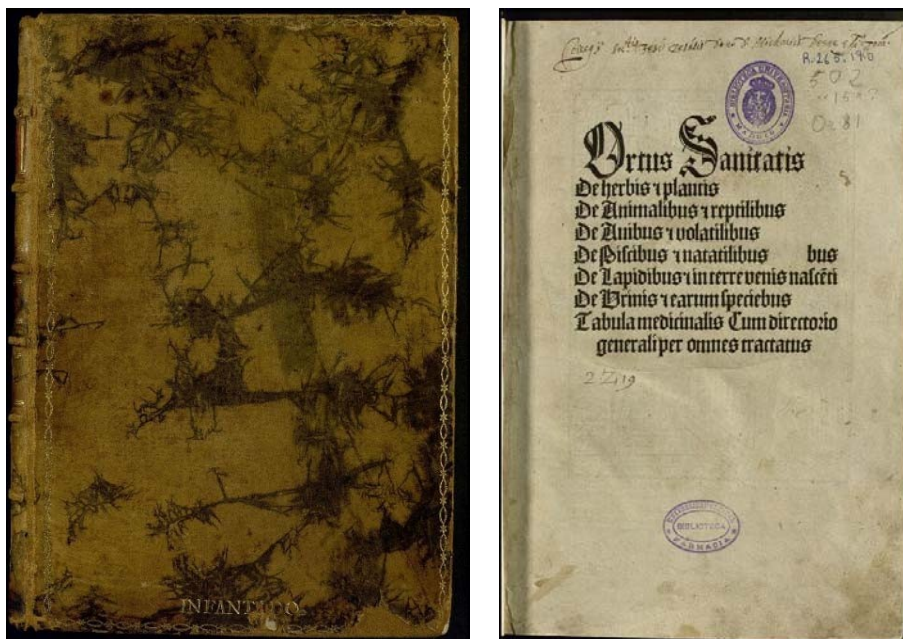 INFANTADO
R. 265.190
502
Ortus Sanitatis
De herbis ⁊ plantis
De Animalibus ⁊ reptilibus
De Auibus ⁊ volatilibus
De Piscibus ⁊ natatilibus bus
De Lapidibus ⁊ in terre venis nascẽti
De Vrinis ⁊ earum speciebus
Tabula medicinalis Cum directorio
generali per omnes tractatus
BIBLIOTECA
FARMACIA